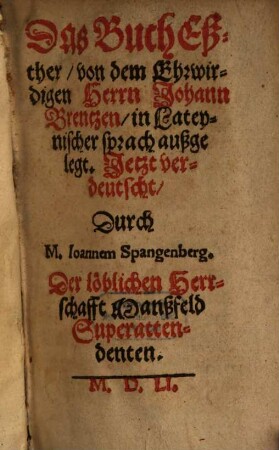 Das Buch Eß-
ther / von dem Ehrwir-
digen Herrn Johann
Brentzen / in Latey-
nischer sprach außge
legt. Jetzt ver-
deutscht /
Durch
M. Ioannem Spangenberg.
Der löblichen Herr-
schafft Manßfeld
Superatten-
denten.
M. D. LI.